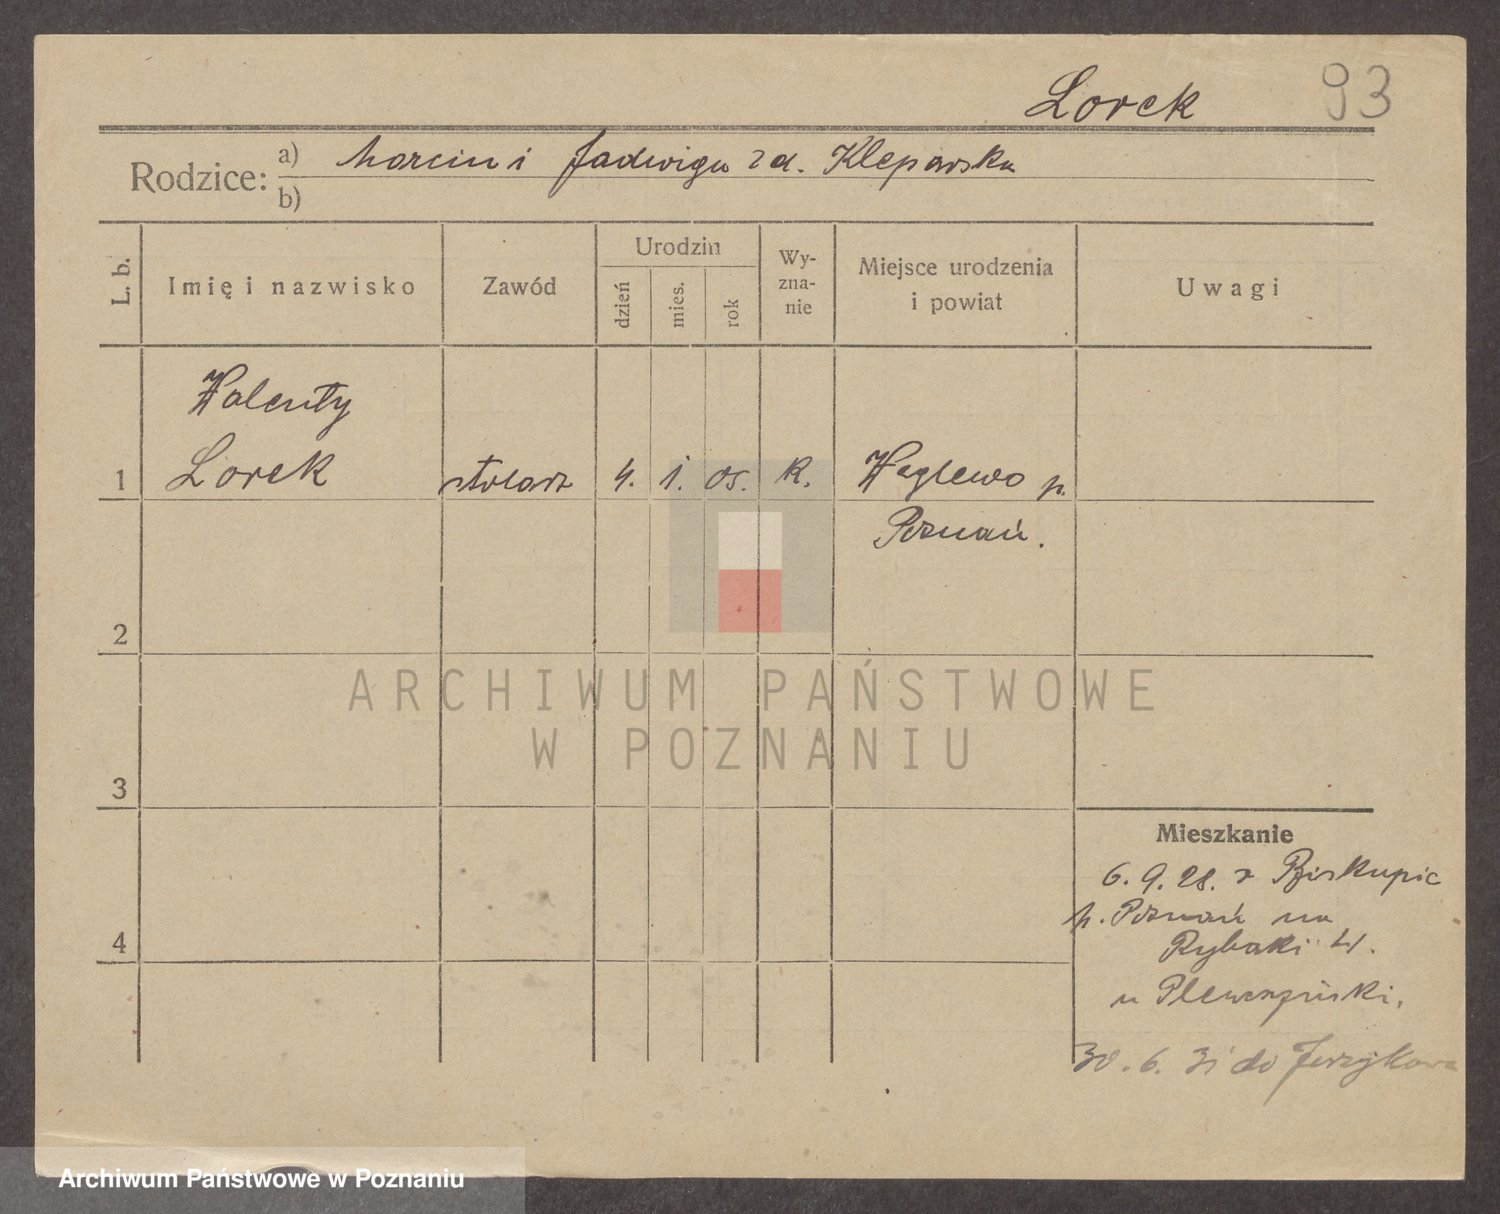 Lorek 93
Rodzice: a) Marcin i Jadwiga zd. Kleparska
b)
L. b. Imię i nazwisko Zawód Urodzin dzień mies. rok Wyznanie Miejsce urodzenia i powiat Uwagi
Walenty
1 Lorek stolarz 4. 1. 05. k. Węglewo p.
Poznań.
2
3
4
Mieszkanie
6. 9. 28. z Biskupic
p. Poznań na
Rybaki 21.
u Plewczyński.
30. 6. 31 do Jerzykowa
ARCHIWUM PAŃSTWOWE
W POZNANIU
Archiwum Państwowe w Poznaniu